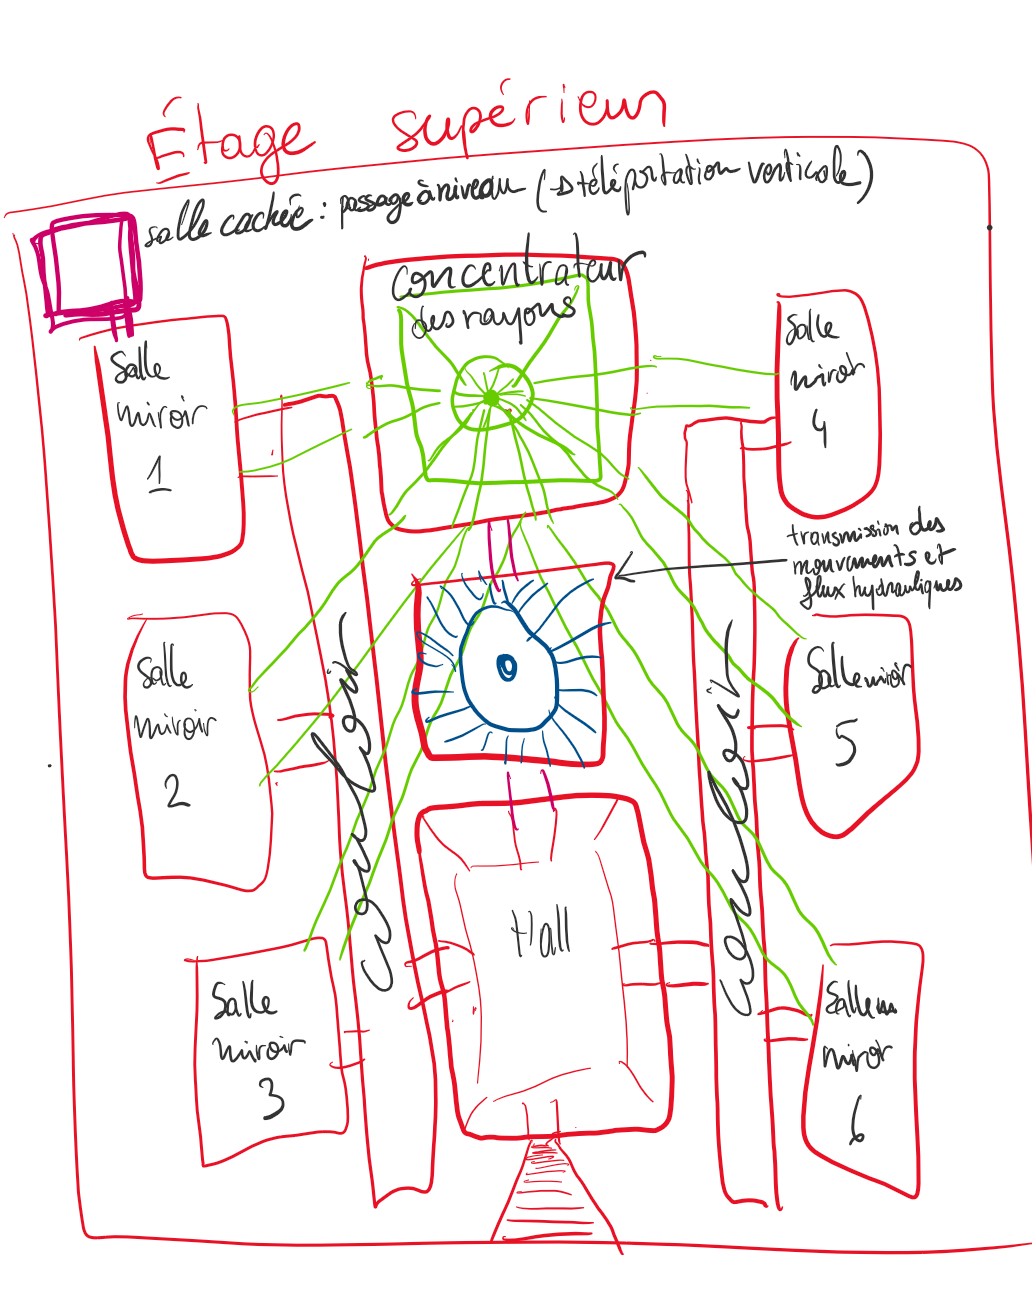 Étage supérieur
salle cachée : passage à niveau (→ téléportation verticale)
concentrateur
des rayons
Salle
miroir
1
Salle
miroir
4
transmission des
mouvements et
flux hydrauliques
Salle
miroir
2
couloir
couloir
Salle miroir
5
Hall
Salle
miroir
3
Salle
miroir
6